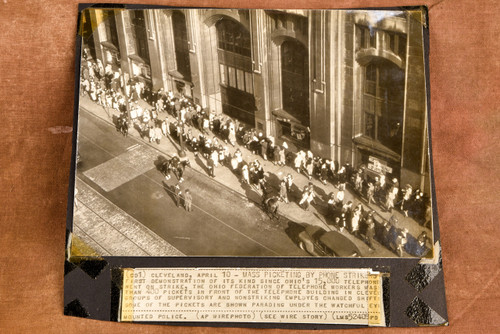 (S1) CLEVELAND, APRIL 10 - MASS PICKETING BY PHONE
FIRST DEMONSTRATION OF ITS KIND SINCE OHIO'S 15,000 TELEPHON
ON STRIKE, THE OHIO FEDERATION OF TELEPHONE WORKERS MA
THAN 400 PICKETS IN FRONT OF THE TELEPHONE BUILDING IN CLEVE
GROUPS OF SUPERVISORY AND NONSTRIKING EMPLOYES CHANGED SHIFT
SOME OF THE PICKETS ARE SHOWN PARADING UNDER THE WATCHFUL EY
MOUNTED POLICE. (AP WIREPHOTO) (SEE WIRE STORY)